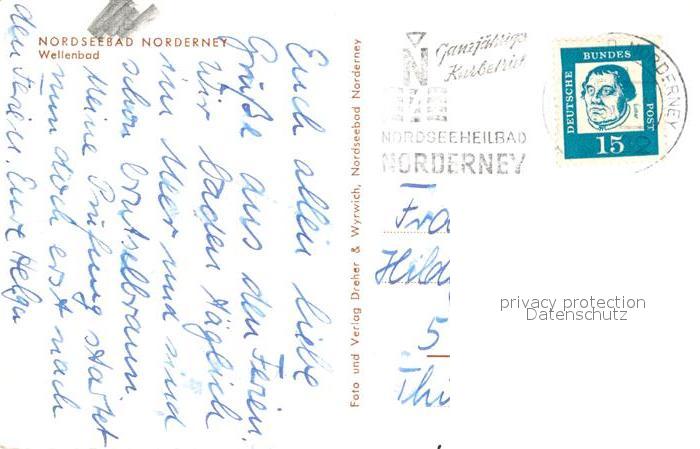 NORDSEEBAD NORDERNEY
Wellenbad
Euch allen liebe
Grüße aus den Ferien.
Wir baden täglich
im Meer und sind
schon knusselbraun
Meine Prüfung startet
nun doch erst nach
den Ferien. Eure Helga
Foto und Verlag Dreher & Wyrwich, Nordseebad Norderney
N
Ganzjährige
Kurbetrieb
NORDSEEHEILBAD
NORDERNEY
NORDERNEY
DEUTSCHE
BUNDES
POST
15
Fra
Hild
5
Thi
privacy protection
Datenschutz